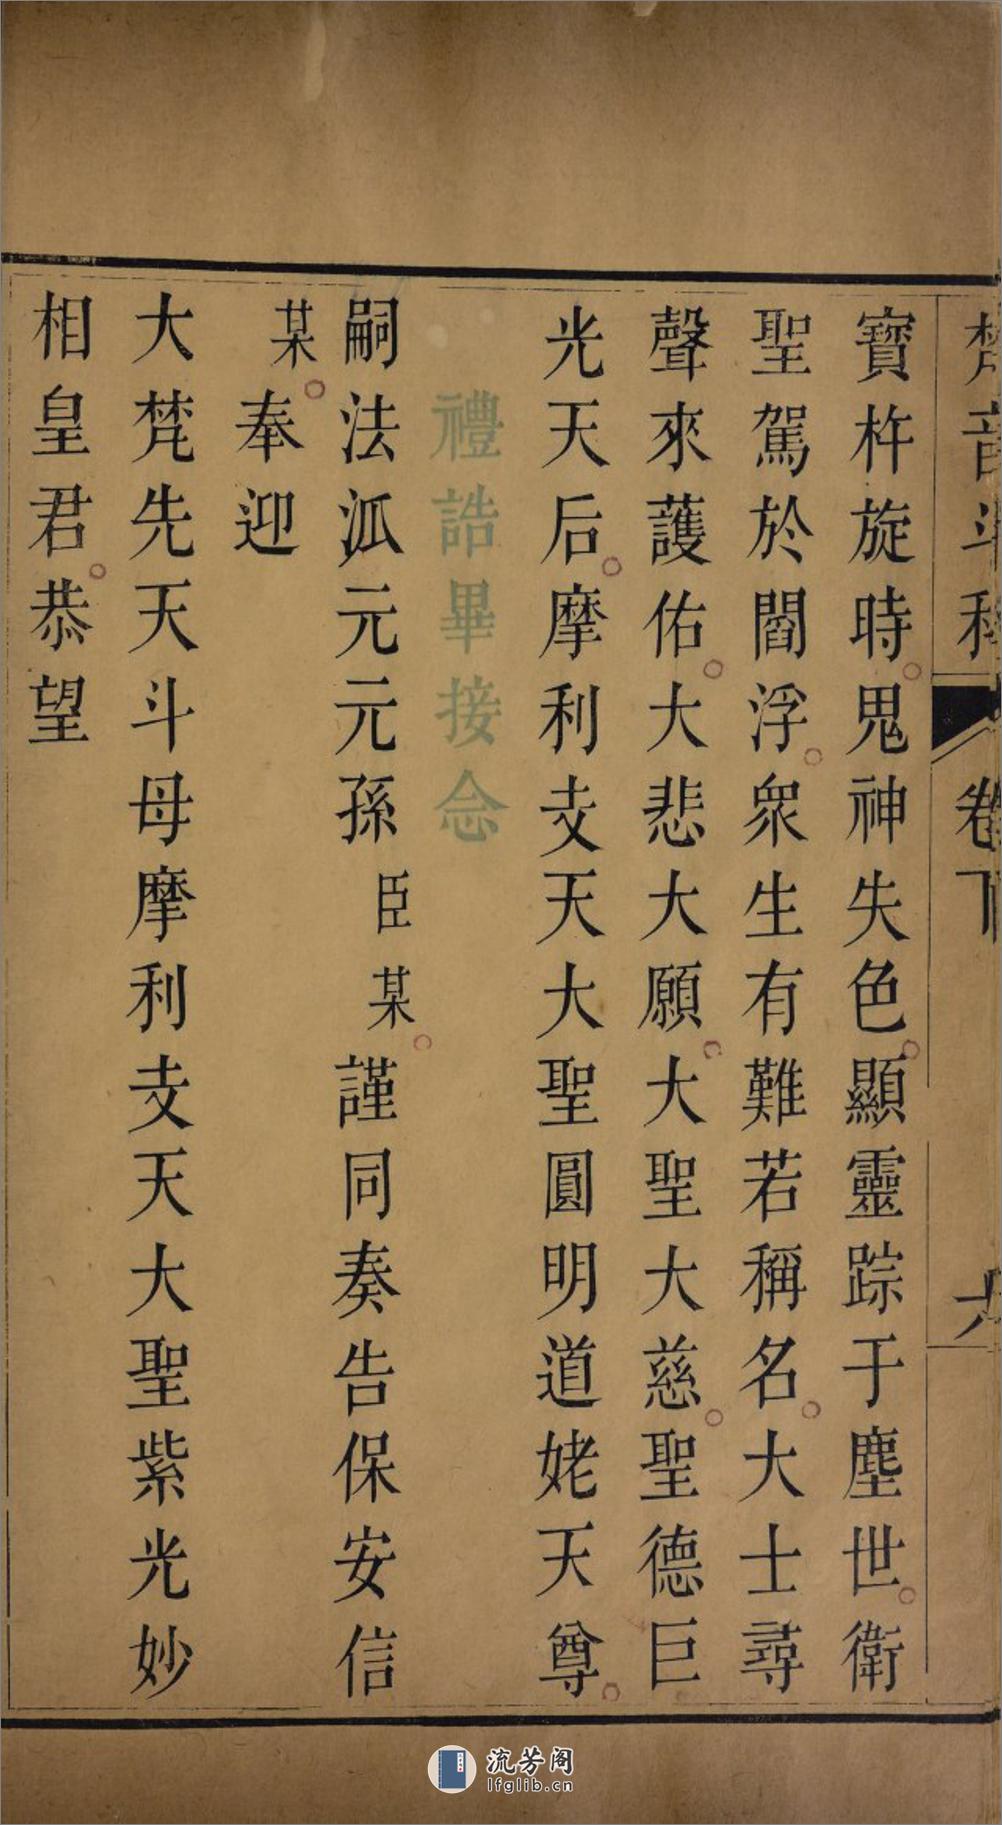 梵音斗科 卷下 六
寶杵旋時。鬼神失色。顯靈踪于塵世。衛
聖駕於閻浮。衆生有難若稱名。大士尋
聲來護佑。大悲大願。大聖大慈。聖德巨
光天后。摩利攴天大聖圓明道姥天尊。
禮誥畢接念
嗣法泒元元孫臣某。謹同奏告保安信
某。奉迎
大梵先天斗母摩利攴天大聖紫光妙
相皇君。恭望
流芳阁
lfglib.cn